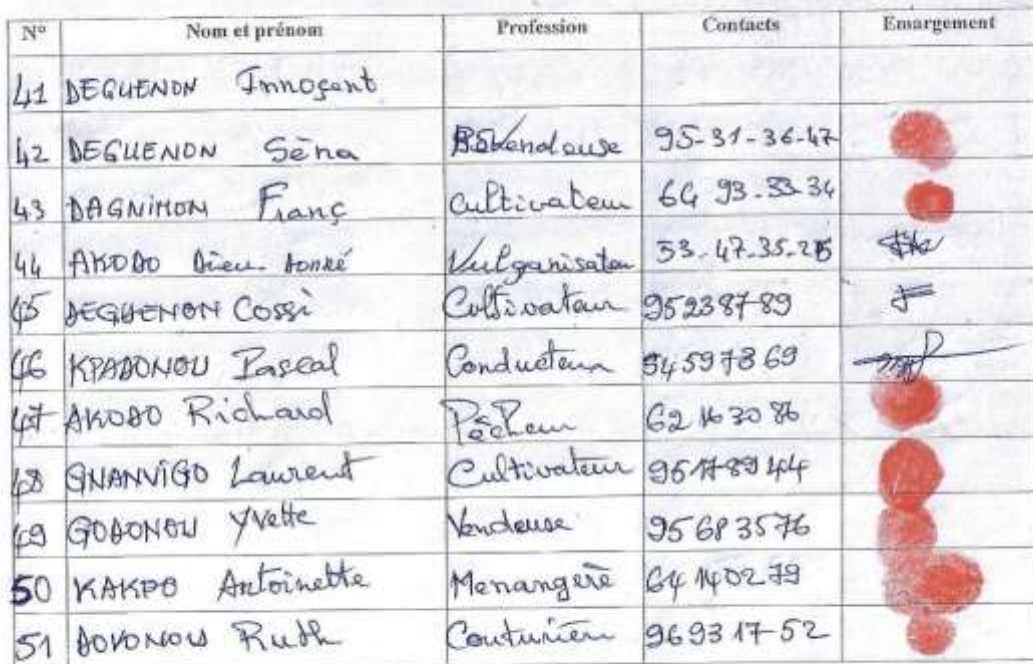 N° Nom et prénom Profession Contacts Emargement
41 DEGUENON Innoçent
42 DEGUENON Sèna Revendeuse 95-31-36-47
43 DAGNIMON Franç Cultivateur 64 93-33-34
44 AKODO Dieu-donné Vulganisateur 53-47-35-25
45 DEGUENON Cossi Cultivateur 95238789
46 KPADONOU Pascal Conducteur 94597869
47 AKODO Richard Pêcheur 62 16 30 86
48 GNANVIGO Laurent Cultivateur 95178944
49 GODONOU Yvette Vendeuse 95 68 35 76
50 KAKPO Antoinette Menangère 64 14 02 79
51 DOVONOU Ruth Couturière 969317-52